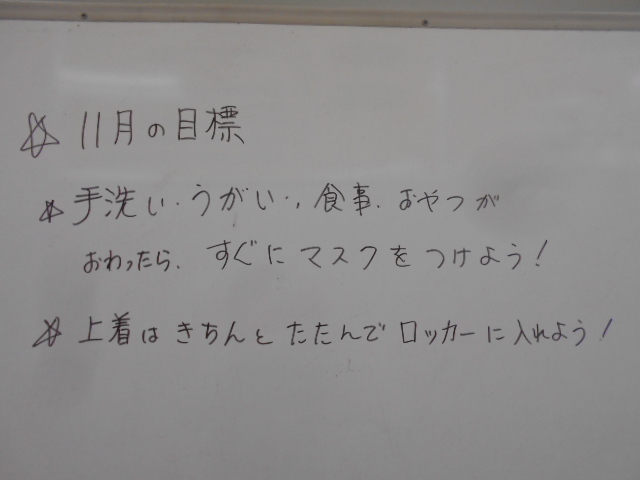 ☆ 11月の目標
☆ 手洗い・うがい・、食事、おやつが
おわったら、すぐにマスクをつけよう！
☆ 上着はきちんとたたんでロッカーに入れよう！